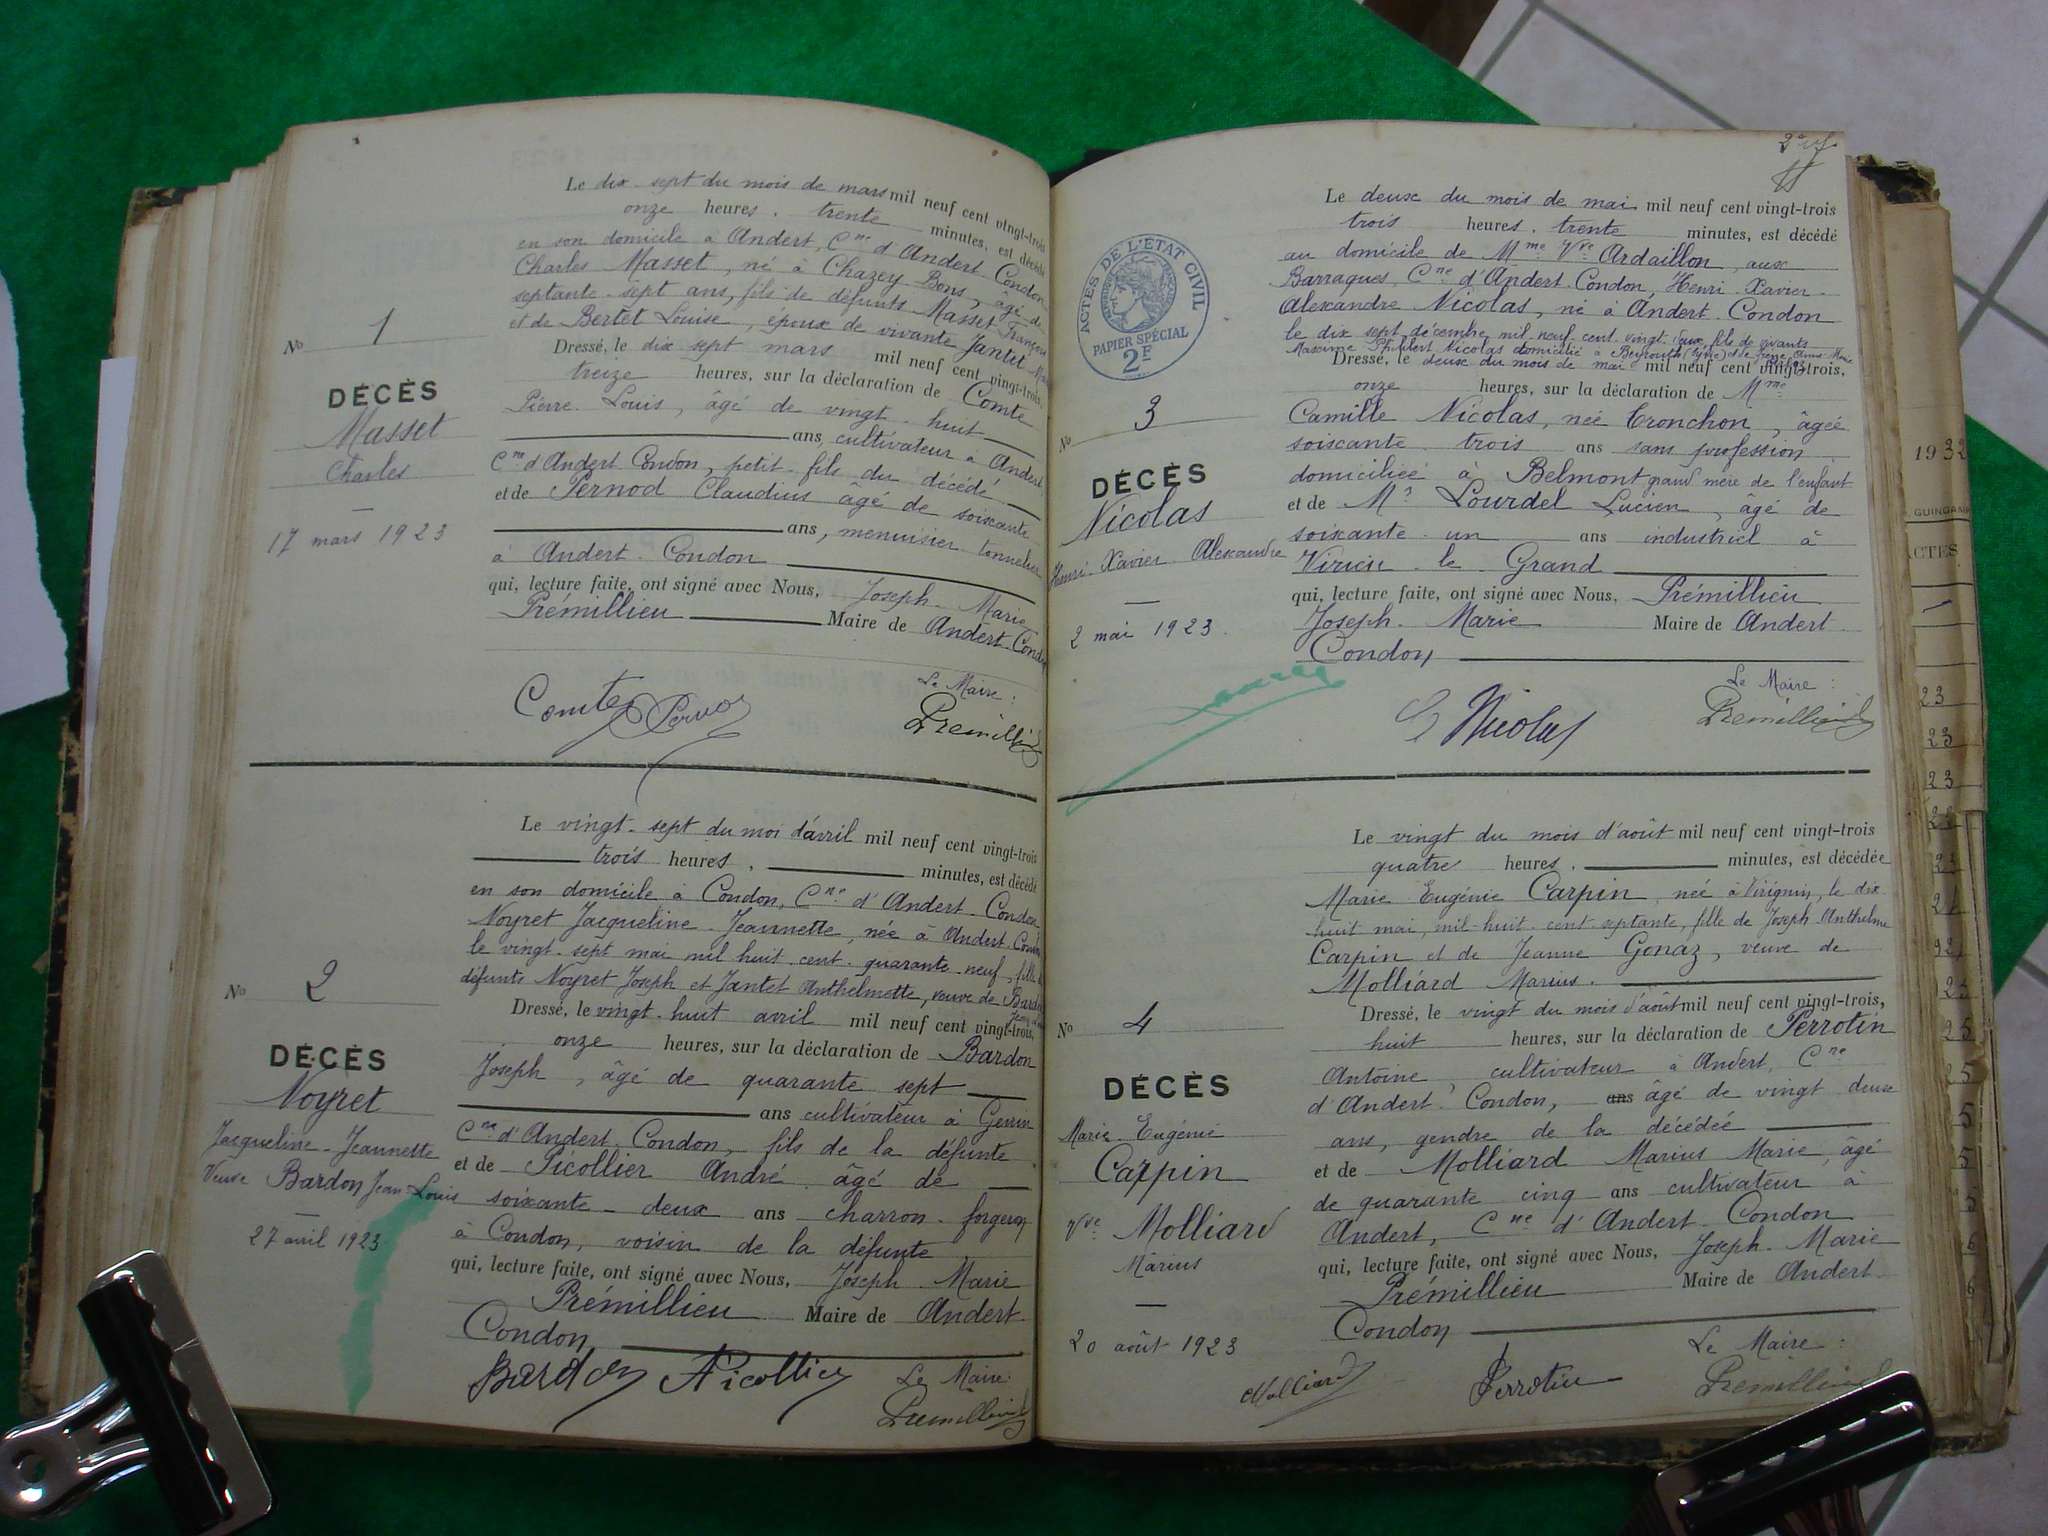 Le dix-sept du mois de mars mil neuf cent vingt-trois
onze heures. trente minutes, est décédé
en son domicile à Andert, Cne d'Andert-Condon
Charles Masset, né à Chazey-Bons, âgé de
septante-sept ans, fils de défunts Masset François
et de Bertet Louise, époux de vivante Jantet
Dressé, le dix sept mars mil neuf cent vingt-trois,
treize heures, sur la déclaration de Comte
Pierre-Louis, âgé de vingt-huit
ans, cultivateur à Andert
Cne d'Andert-Condon, petit-fils du décédé
et de Pernod Claudius âgé de soixante
ans, menuisier-tonnelier
à Andert-Condon
qui, lecture faite, ont signé avec Nous, Joseph-Marie
Prémillieu Maire de Andert-Condon
Le Maire:
Comte Pernod Prémillieu
No 1
DÉCÈS
Masset
Charles
17 mars 1923
Le vingt-sept du moi d'avril mil neuf cent vingt-trois
trois heures. minutes, est décédé
en son domicile à Condon, Cne d'Andert-Condon
Noyret Jacqueline-Jeannette, née à Andert-Condon
le vingt-sept mai mil huit cent quarante-neuf, fille de
défunts Noyret Joseph et Jantet Anthelmette, veuve de Bardon
Dressé, le vingt-huit avril mil neuf cent vingt-trois,
onze heures, sur la déclaration de Bardon
Joseph, âgé de quarante sept
ans cultivateur à Genin
Cne d'Andert-Condon, fils de la défunte
et de Picollier André âgé de
soixante-deux ans charron-forgeron
à Condon, voisin de la défunte
qui, lecture faite, ont signé avec Nous, Joseph-Marie
Prémillieu Maire de Andert
Condon
Bardon A Picollier Le Maire:
Prémillieu
No 2
DÉCÈS
Noyret
Jacqueline-Jeannette
Veuve Bardon Jean-Louis
27 avril 1923
Le deux du mois de mai mil neuf cent vingt-trois
trois heures. trente minutes, est décédé
au domicile de Mme Vve Ardaillon, aux
Barraques, Cne d'Andert-Condon, Henri-Xavier-
Alexandre Nicolas, né à Andert-Condon
le dix sept décembre mil neuf cent vingt-deux, fils de vivants
Maxime Philibert Nicolas domicilié à Beyrouth (Syrie) et de
Dressé, le deux du mois de mai mil neuf cent vingt-trois,
onze heures, sur la déclaration de Mme
Camille Nicolas, née Tronchon, âgée
soixante-trois ans sans profession
domiciliée à Belmont grand'mère de l'enfant
et de Mr Lourdel Lucien, âgé de
soixante-un ans industriel à
Virieu-le-Grand
qui, lecture faite, ont signé avec Nous, Prémillieu
Joseph-Marie Maire de Andert-
Condon
Le Maire:
C Nicolas Prémillieu
ACTES DE L'ÉTAT CIVIL
PAPIER SPÉCIAL
2F
No 3
DÉCÈS
Nicolas
Henri-Xavier-Alexandre
2 mai 1923.
Le vingt du mois d'août mil neuf cent vingt-trois
quatre heures. minutes, est décédée
Marie Eugénie Carpin, née à Virignin, le dix
huit mai, mil-huit-cent-septante, fille de Joseph-Anthelme
Carpin et de Jeanne Gonaz, veuve de
Molliard Marius.
Dressé, le vingt du mois d'août mil neuf cent vingt-trois,
huit heures, sur la déclaration de Perrotin
Antoine, cultivateur à Andert, Cne
d'Andert-Condon, ans âgé de vingt-deux
ans, gendre de la décédée
et de Molliard Marius Marie, âgé
de quarante cinq ans cultivateur à
Andert, Cne d'Andert-Condon
qui, lecture faite, ont signé avec Nous, Joseph-Marie
Prémillieu Maire de Andert-
Condon
Le Maire:
Molliard Perrotin Prémillieu
No 4
DÉCÈS
Marie-Eugénie
Carpin
Vve Molliard
Marius
20 août 1923
1932
ACTES